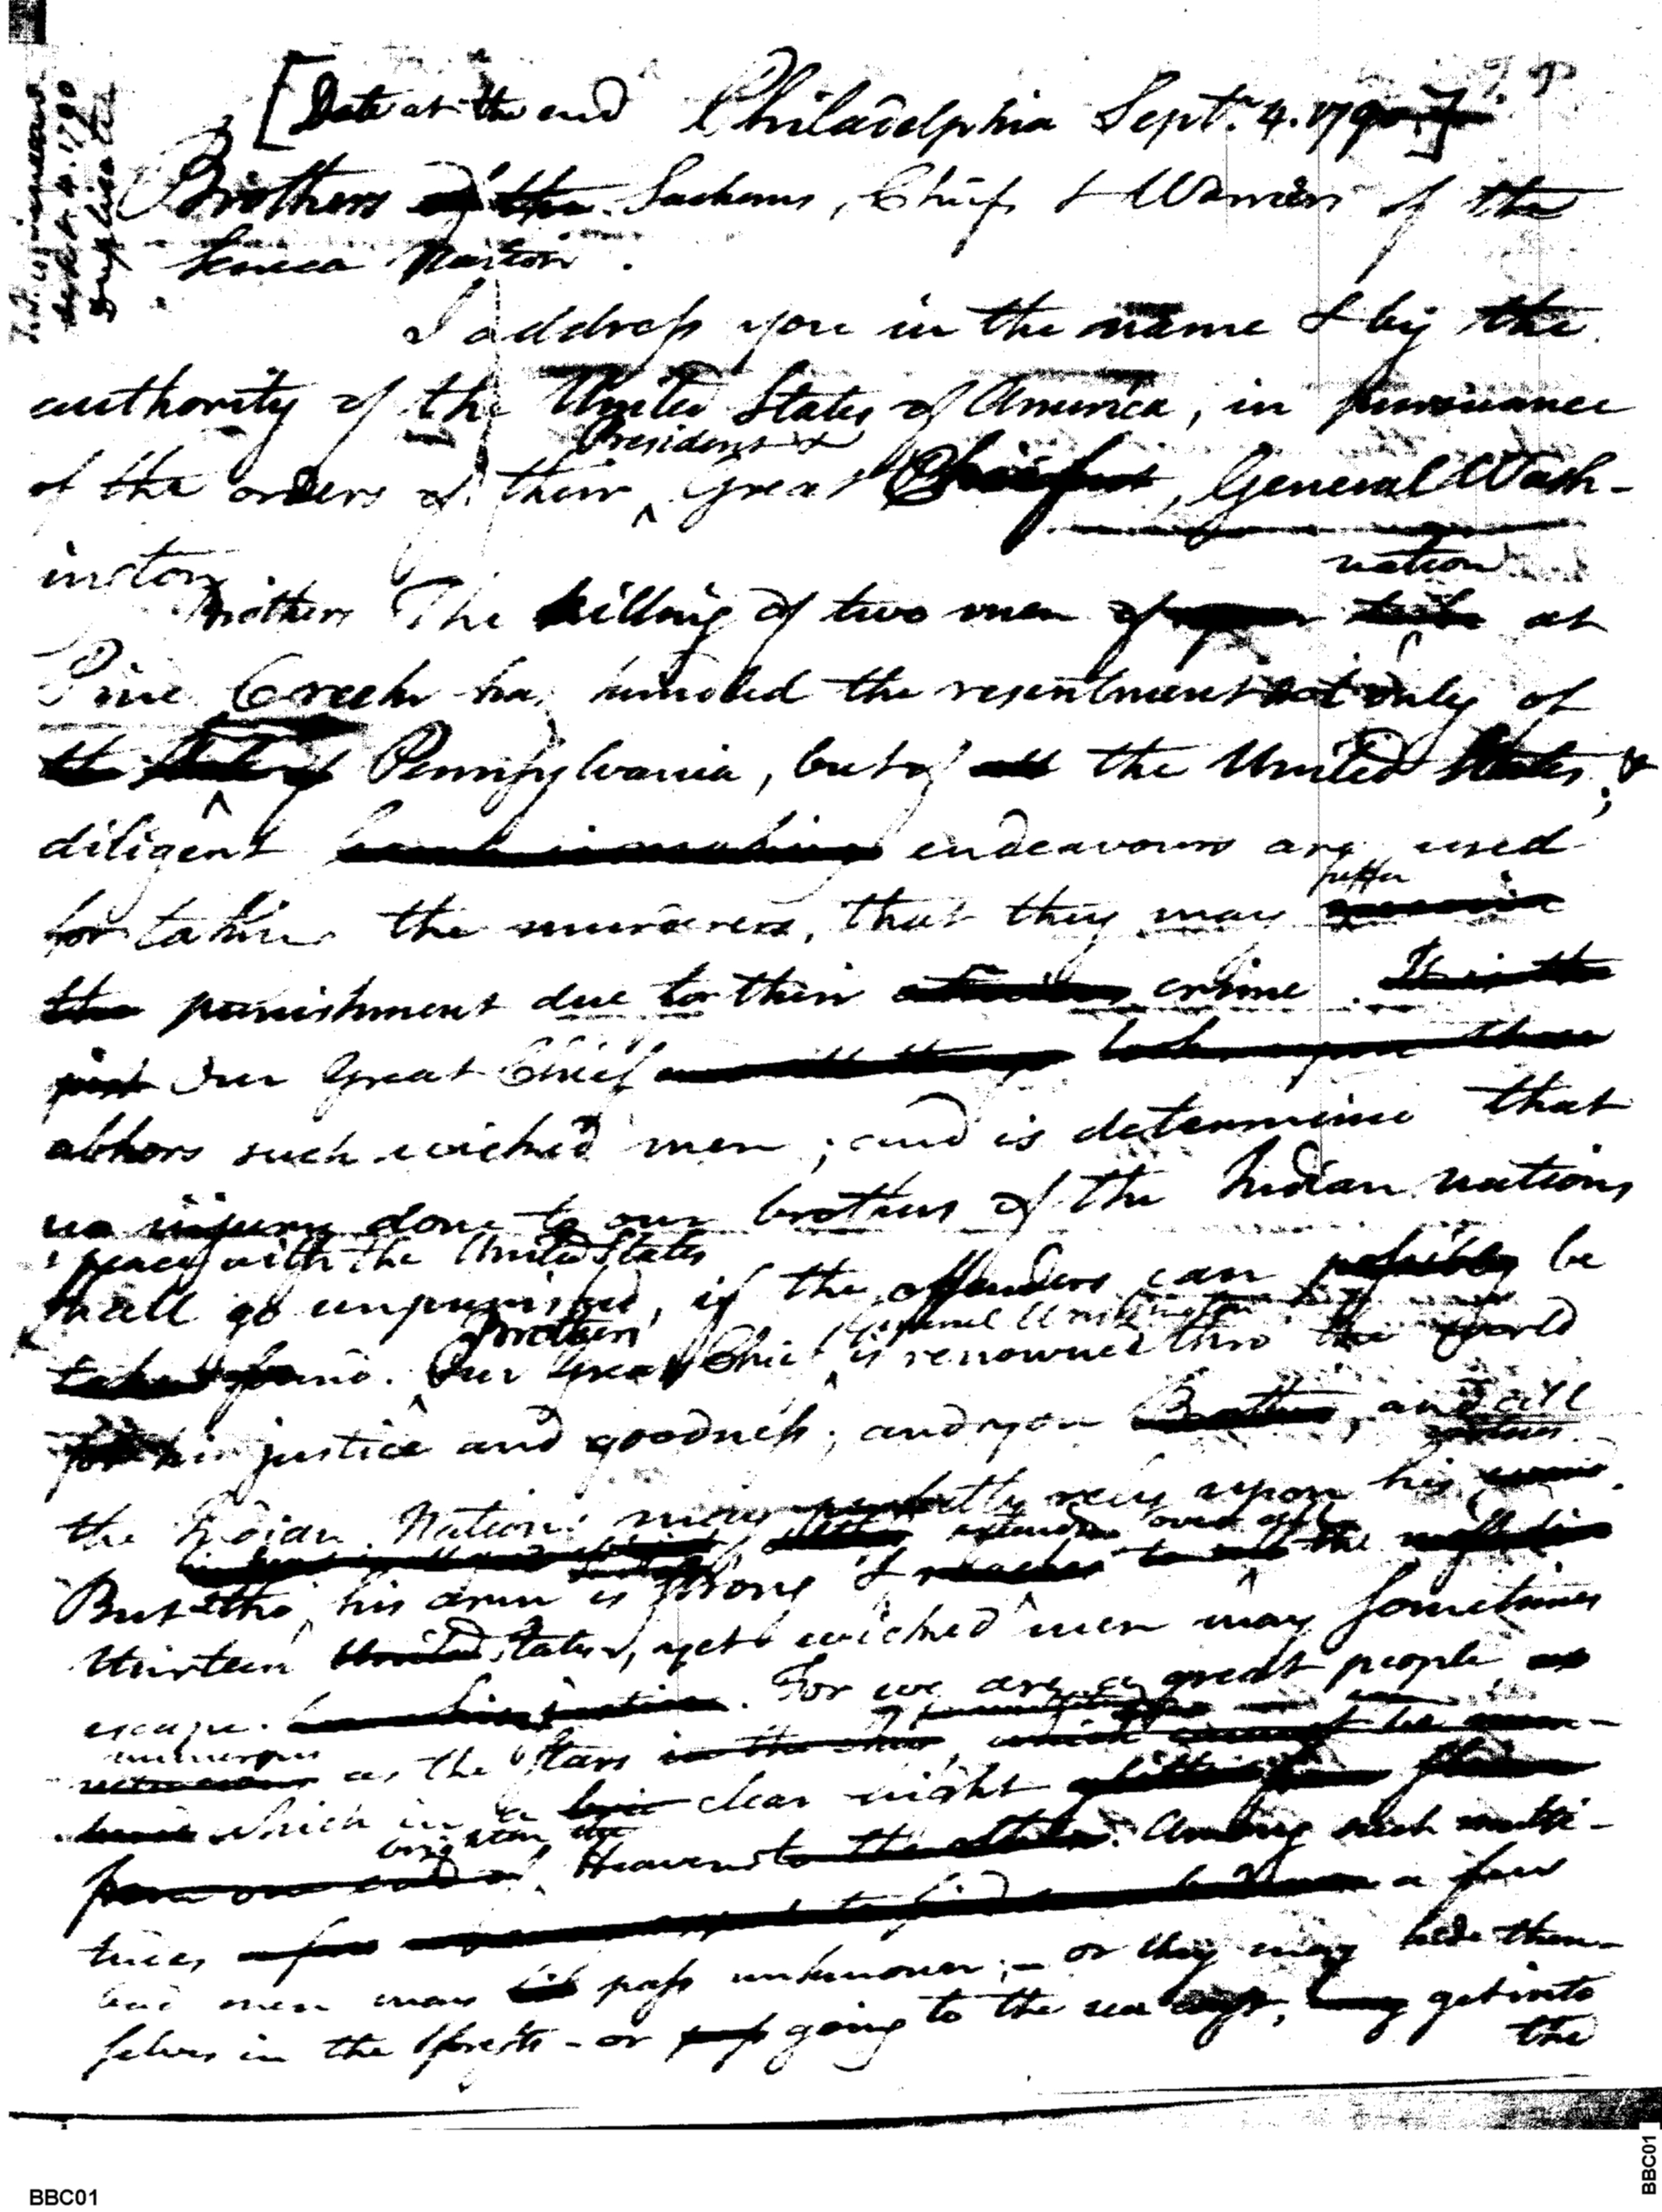 [Date at the end Philadelphia Sept. 4. 1790.]
Brothers of the Sachems, Chiefs & Warriors of the
Seneca Nation.
I address you in the name & by the
authority of the United States of America, in pursuance
President &
of the orders of their great Chief, General Wash-
ington.
nation
Brothers The killing of two men of your tribe at
Pine Creek has kindled the resentment not only of
the State of Pennsylvania, but of all the United States; &
diligent search is making endeavours are used
suffer
for taking the murderers, that they may receive
the punishment due to their crime. It is the
just Our Great Chief look upon these
abhors such wicked men; and is determined that
no injury done to our brothers of the Indian nations
peace with the United States
shall go unpunished, if the offenders can possibly be
Brothers General Washington
taken found. Our Great Chief is renowned thro the world
for his justice and goodness; and you Brothers, and all
the Indian Nations may perfectly rely upon his
extends over all
But tho' his arm is strong & reaches to the
thirteen United States, yet wicked men may sometimes
escape. For we are a great people as
numerous
as the Stars in the sky, which cannot be
which in a clear night
brighten the
from one end of Heavens to the other. Among such multi-
tudes, a few a few
bad men may pass unknown; - or they may hide them-
selves in the forests - or going to the sea may get into
the
BBC01
BBC01